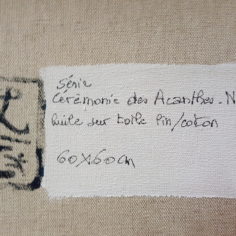 Série
Cérémonie des Acanthes. N
huile sur toile lin/coton
60x60cm